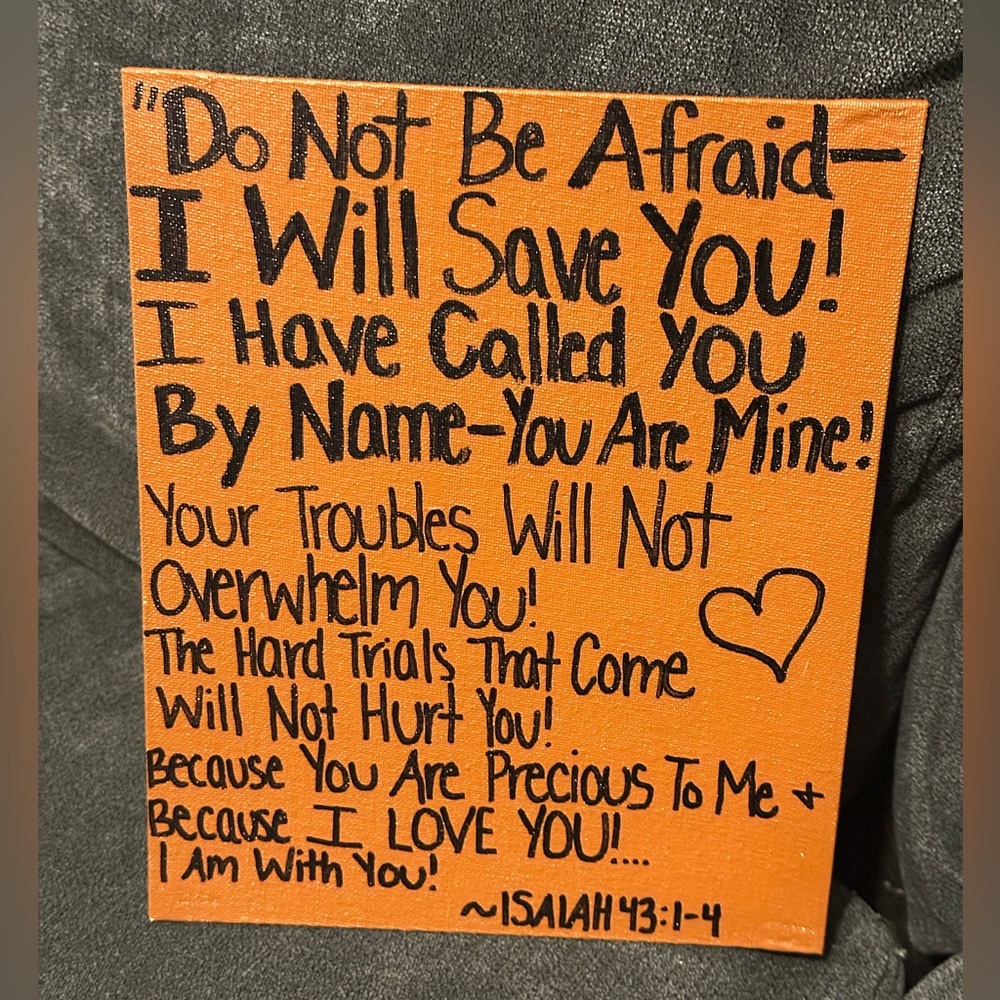 "Do Not Be Afraid—
I Will Save You!
I Have Called You
By Name-You Are Mine!
Your Troubles Will Not
Overwhelm You!
The Hard Trials That Come
Will Not Hurt You!
Because You Are Precious To Me +
Because I LOVE YOU!....
I Am With You!
~ISAIAH 43:1-4